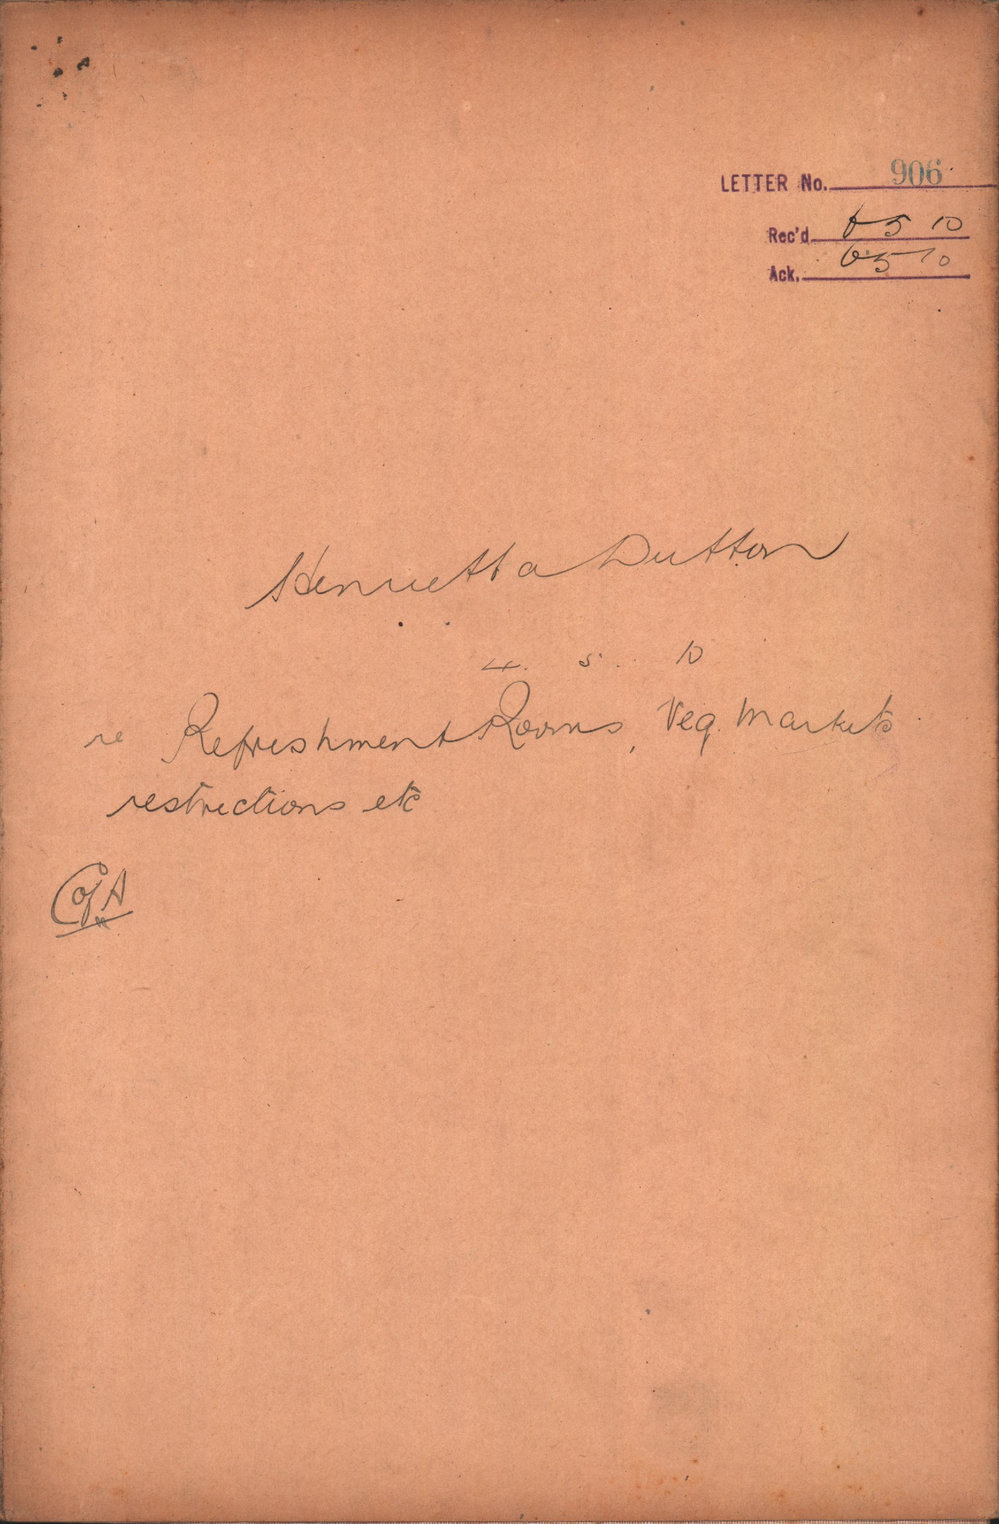 LETTER No. 906
Rec'd 6 5 10
Ack. 6 5 10
Henrietta Dutton
4. 5. 10
re Refreshment Rooms, Veg. Markets
restrictions etc
C of A